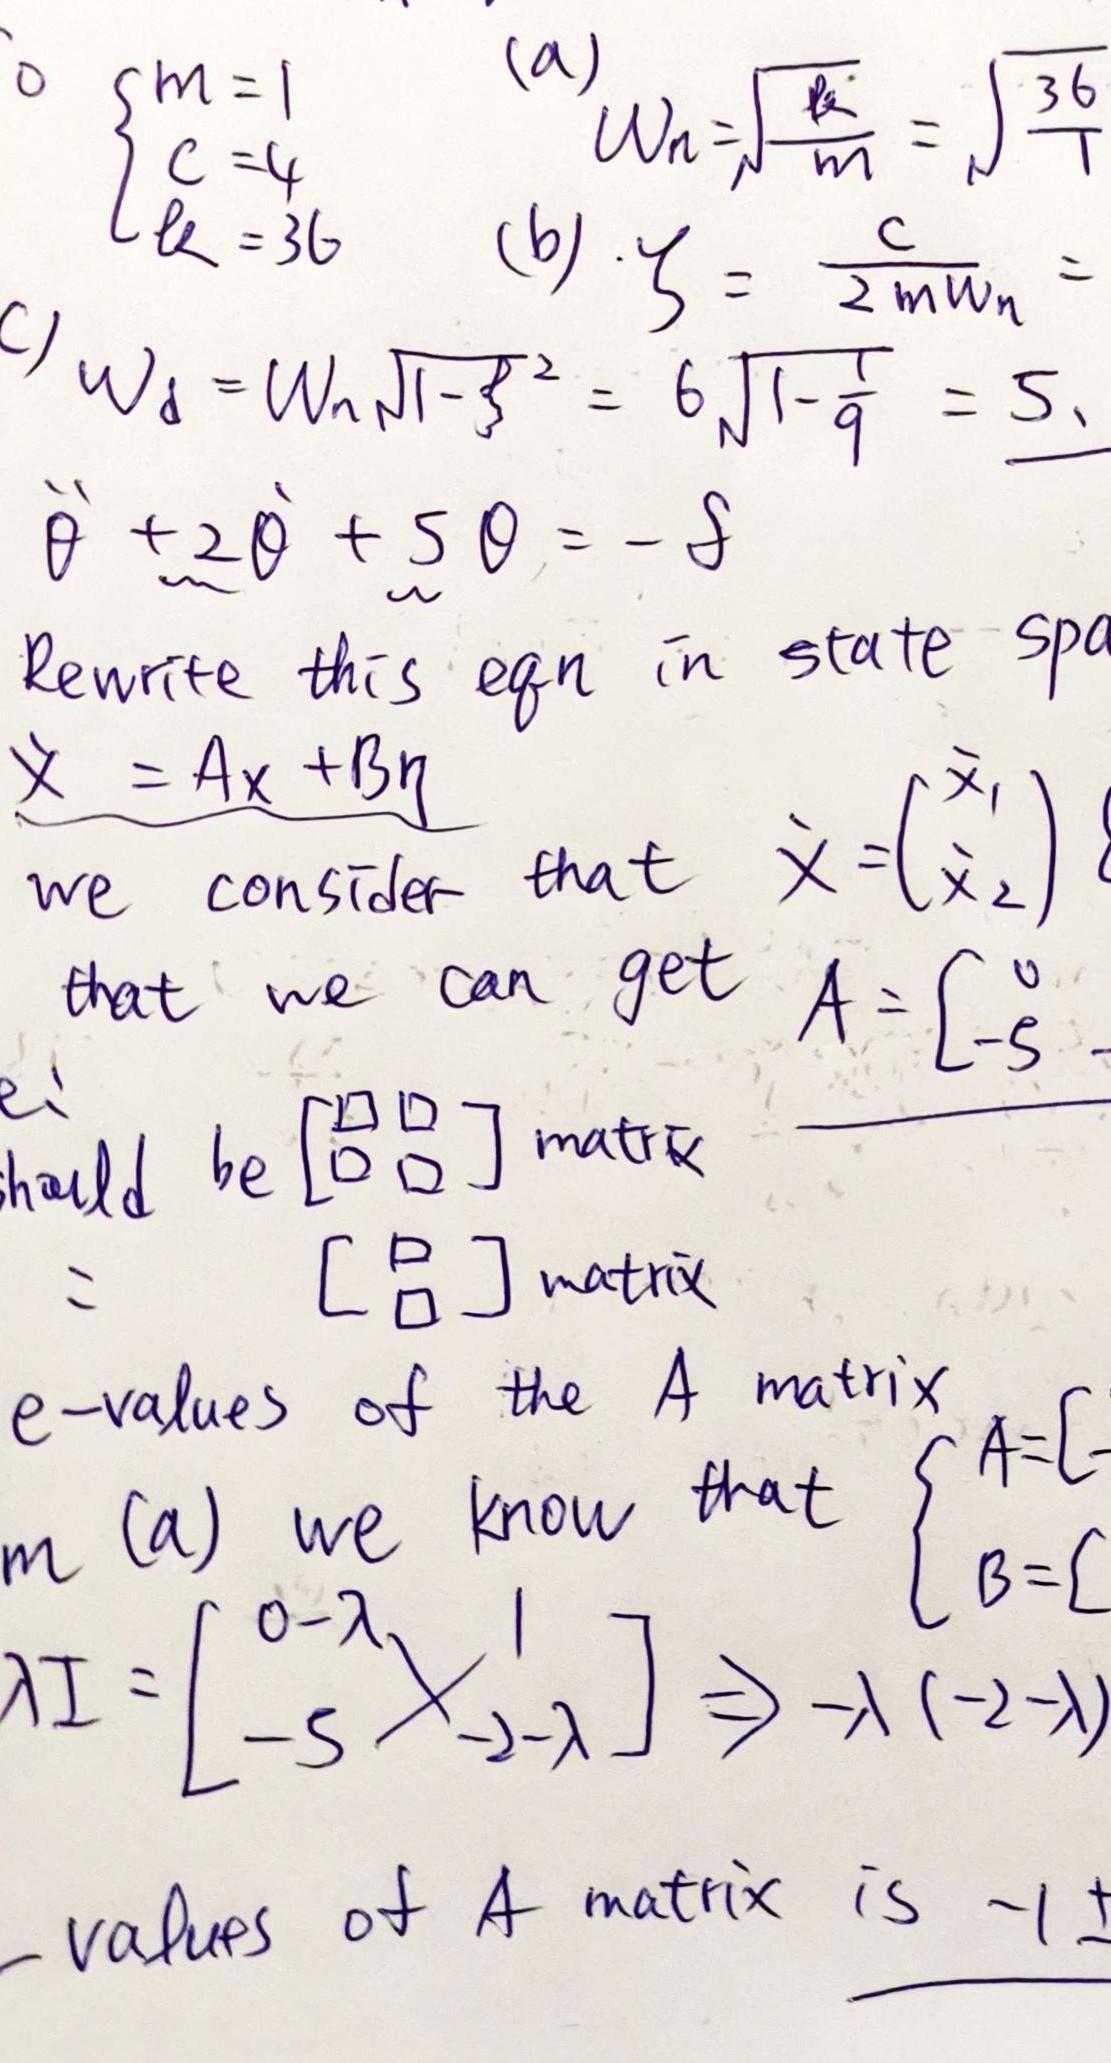 { m = 1
c = 4
k = 36
(a)
Wn = √(k/m) = √(36/1
(b) . ζ = c/(2mWn) =
c) Wd = Wn√(1-ζ²) = 6√(1-1/9) = 5.
θ̈ + 2θ̇ + 5θ = -δ
Rewrite this eqn in state spa
ẋ = Ax + Bη
we consider that ẋ = (ẋ₁ ẋ₂) {
that we can get A = [0 -5 -
should be [□ □ □ □] matrix
= [□ □] matrix
e-values of the A matrix
m (a) we know that { A = [-
B = [
λI = [0-λ 1 -5 -2-λ] ⇒ -λ(-2-λ)
-values of A matrix is -1 ±